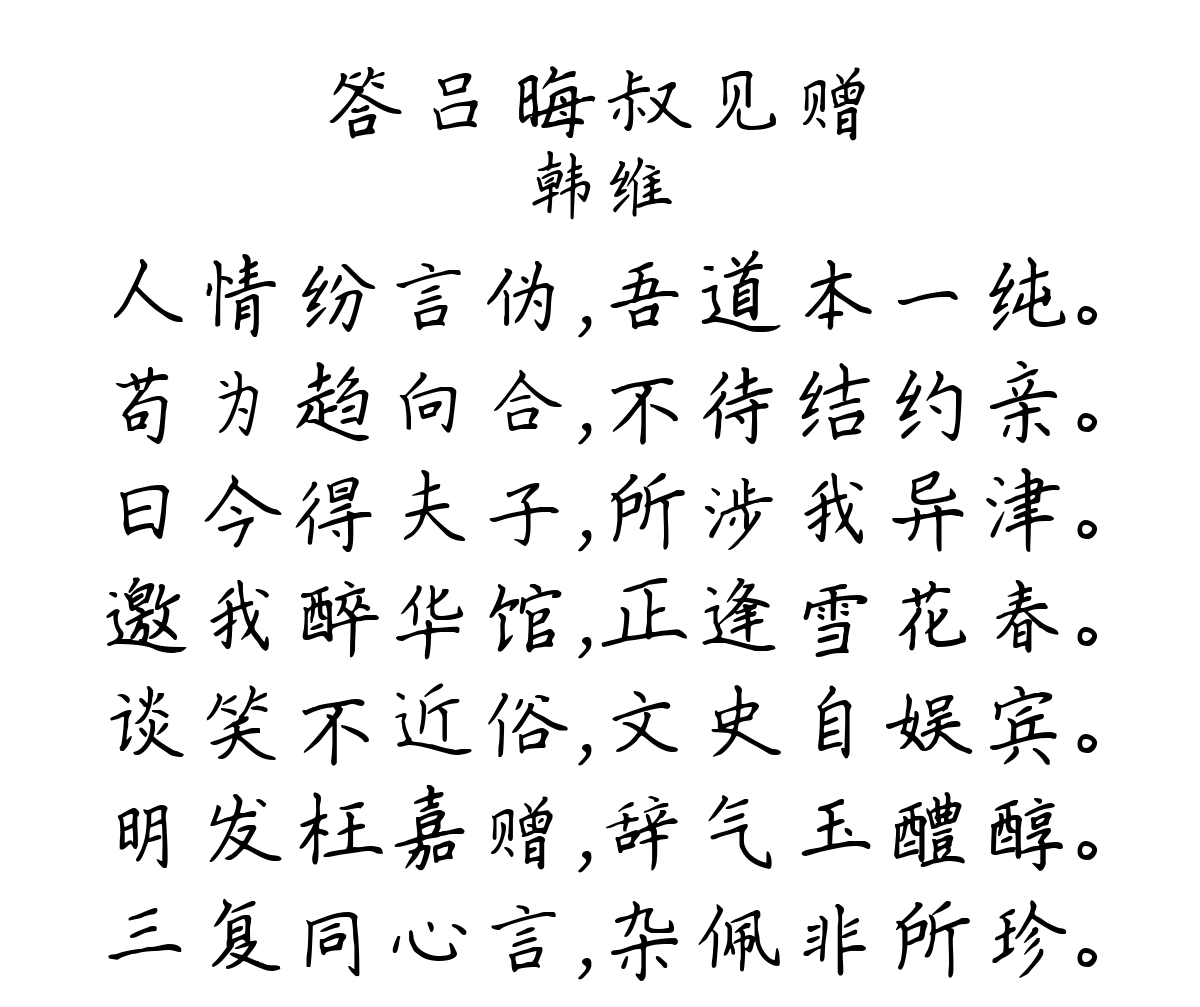 答吕晦叔见赠
韩维
人情纷言伪,吾道本一纯。
苟为趋向合,不待结约亲。
曰今得夫子,所涉我异津。
邀我醉华馆,正逢雪花春。
谈笑不近俗,文史自娱宾。
明发枉嘉赠,辞气玉醴醇。
三复同心言,杂佩非所珍。